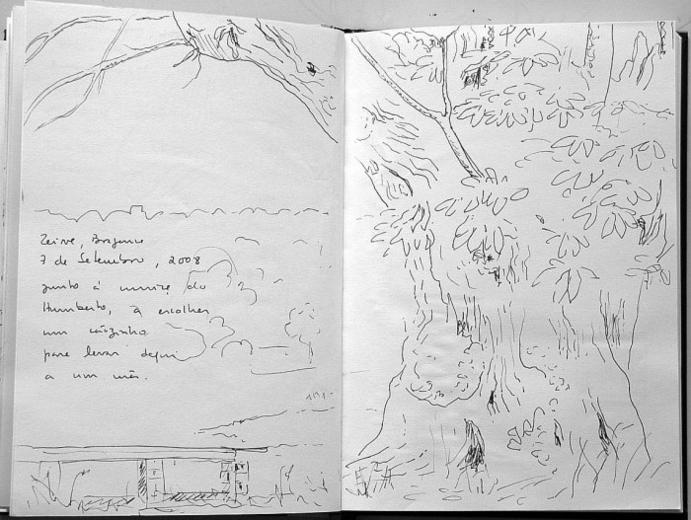 Zeive, Bragança
7 de Setembro, 2008
junto à do
Humberto, a escolher
um cãozinho
para levar daqui
a um mês.